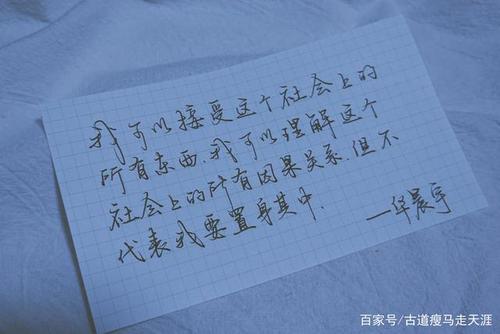 我可以接受这个社会上的
所有东西.我可以理解这个
社会上的所有因果关系.但不
代表我要置身其中.
—华晨宇
百家号/古道瘦马走天涯